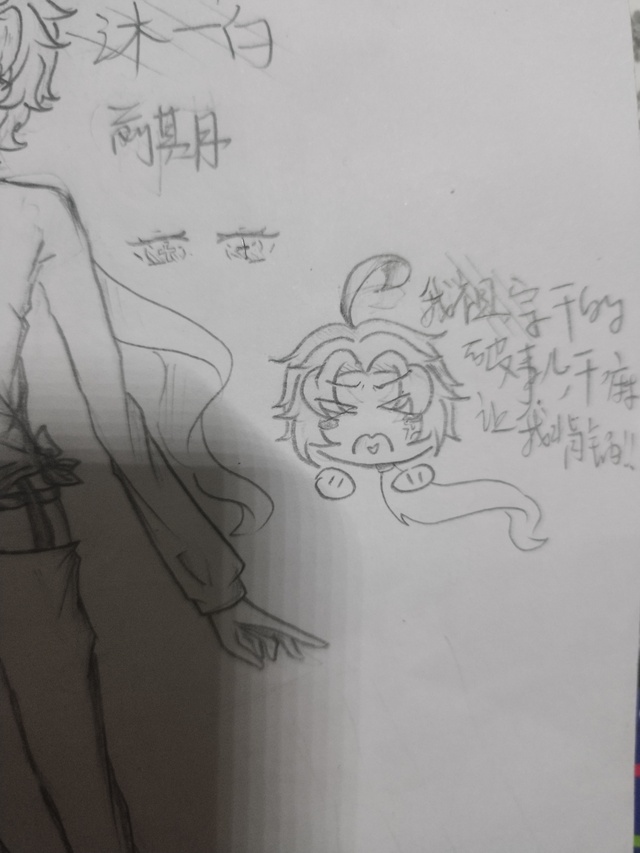 沐一白
期
我祖宗干的
破事儿，干麻
让我背锅!!